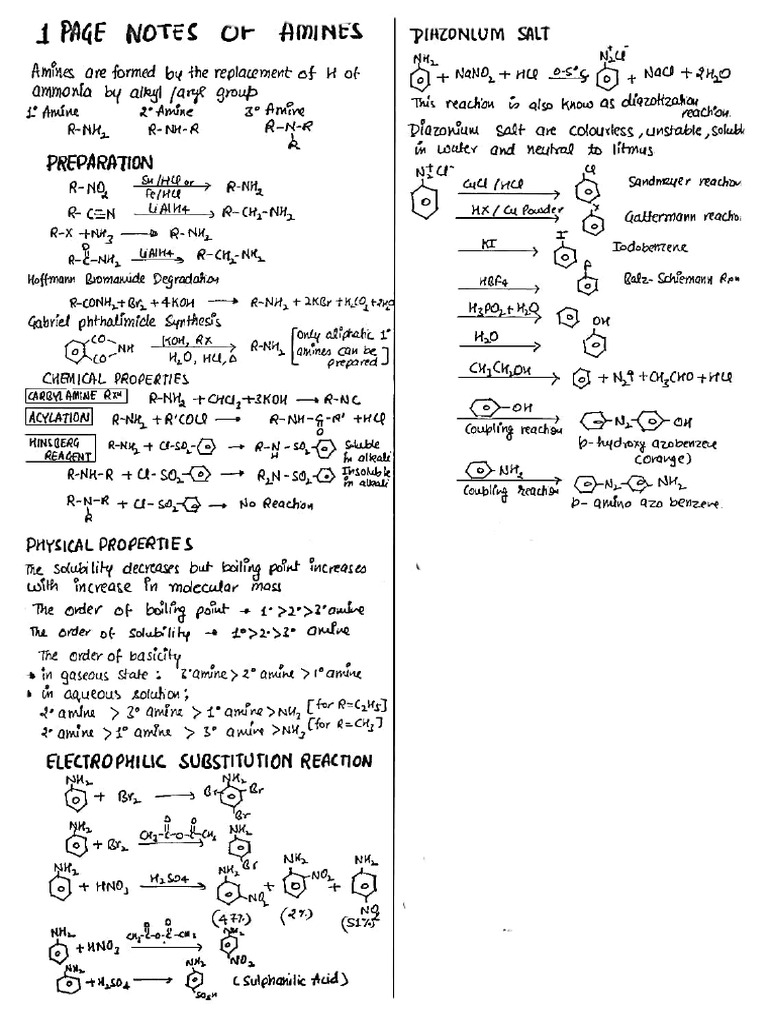 1 PAGE NOTES OF AMINES
Amines are formed by the replacement of H of
ammonia by alkyl/aryl group
1° Amine 2° Amine 3° Amine
R-NH2 R-NH-R R-N-R
R
PREPARATION
R-NO2 Sn/HCl or Fe/HCl → R-NH2
R-C≡N LiAlH4 → R-CH2-NH2
R-X + NH3 → R-NH2
R-C-NH2 LiAlH4 → R-CH2-NH2
O
Hoffmann Bromamide Degradation
R-CONH2 + Br2 + 4KOH → R-NH2 + 2KBr + K2CO3 + 2H2O
Gabriel phthalimide Synthesis
CO CO NH KOH, RX H2O, HCl, Δ → R-NH2 [Only aliphatic 1° amines can be prepared]
CHEMICAL PROPERTIES
CARBYLAMINE RXN R-NH2 + CHCl3 + 3KOH → R-NC
ACYLATION R-NH2 + R'COCl → R-NH-C-R' + HCl
O
HINSBERG REAGENT R-NH2 + Cl-SO2- → R-N-SO2- Soluble in alkali
H
R-NH-R + Cl-SO2- → R2N-SO2- Insoluble in alkali
R-N-R + Cl-SO2- → No Reaction
R
PHYSICAL PROPERTIES
The solubility decreases but boiling point increases
with increase in molecular mass
The order of boiling point → 1°>2°>3° amine
The order of solubility → 1°>2°>3° amine
The order of basicity
in gaseous state : 3° amine > 2° amine > 1° amine
in aqueous solution;
2° amine > 3° amine > 1° amine > NH3 [for R=C2H5]
2° amine > 1° amine > 3° amine > NH3 [for R=CH3]
ELECTROPHILIC SUBSTITUTION REACTION
NH2 + Br2 → NH2 Br Br Br
NH2 + Br2 CH3-C-O-C-CH3 O O → NH2 Br
NH2 + HNO3 H2SO4 → NH2 NO2 + NH2 NO2 + NH2 NO2
(47%) (2%) (51%)
NH2 + HNO3 CH3-C-O-C-CH3 O O → NH2 NO2
NH2 + H2SO4 → NH2 SO3H (Sulphanilic Acid)
DIAZONIUM SALT
NH2 + NaNO2 + HCl 0-5°C → N2+Cl- + NaCl + 2H2O
This reaction is also know as diazotization
reaction.
Diazonium salt are colourless, unstable, solubl
in water and neutral to litmus
N2+Cl-
CuCl/HCl → Cl Sandmayer reaction
HX/Cu Powder → X Gattermann reactio
KI → I Iodobenzene
HBF4 → F Balz-Schiemann Rxn
H3PO2 + H2O →
H2O → OH
CH3CH2OH → + N2↑ + CH3CHO + HCl
-OH → -N2- -OH
Coupling reaction p-hydroxy azobenzene
(orange)
-NH2 → -N2- -NH2
Coupling reaction p-amino azo benzene.